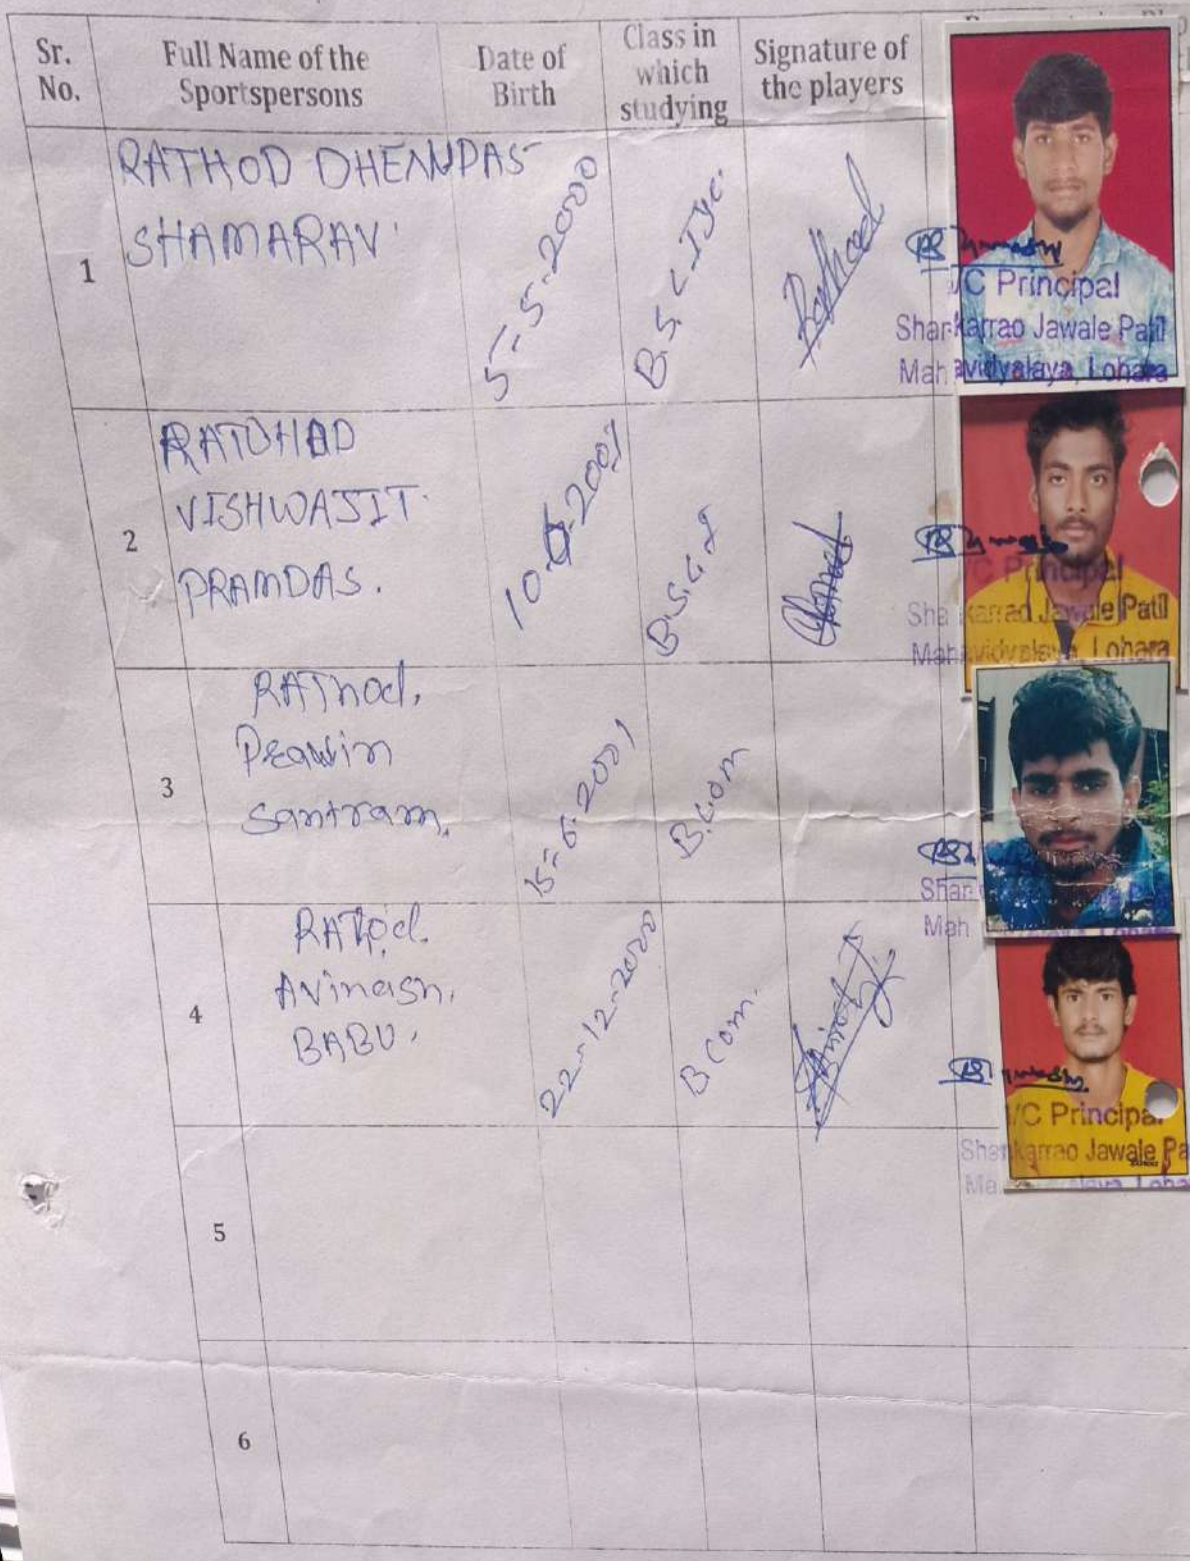 Sr.
No.
Full Name of the
Sportspersons
Date of
Birth
Class in
which
studying
Signature of
the players
1
RATHOD DHENNDAS
SHAMARAV.
5-5-2000
B.S.C
Rathod
I/C Principal
Shankarrao Jawale Patil
Mahavidyalaya, Lohara
2
RATOHAD
VISHWAJIT
PRAMDAS.
2001
B.S.C.
I/C Principal
Shankarrao Jawale Patil
Mahavidyalaya, Lohara
3
RAThod.
Prawin
santram.
15-6-2001
B.Com
4
RAThod.
Avinash.
BABU.
22-12-2000
B Com.
I/C Principal
Shankarrao Jawale Pa
5
6